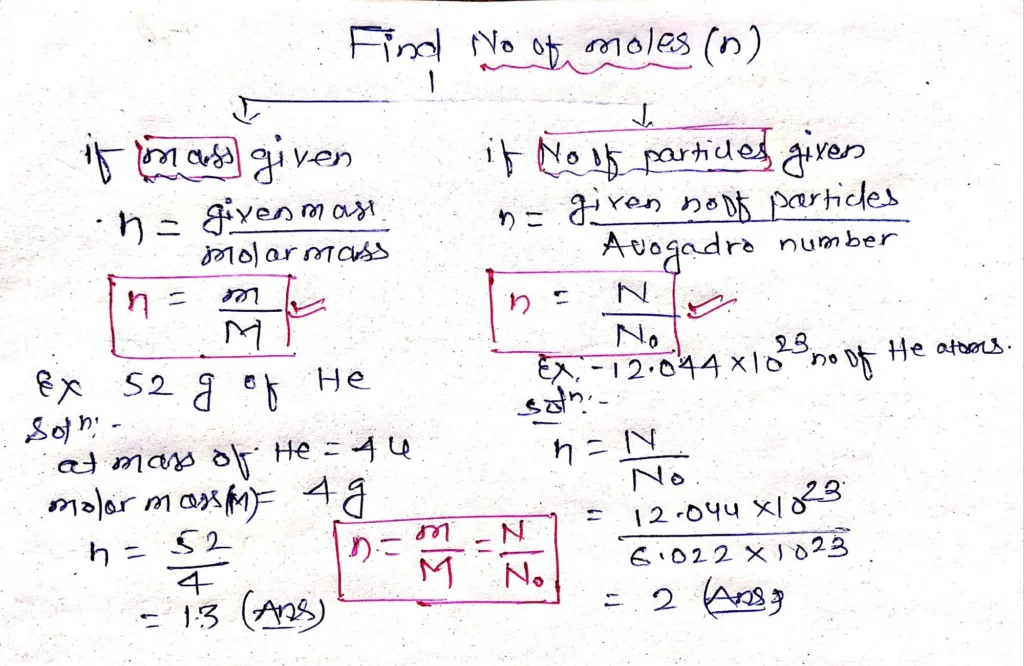 Find No of moles (n)
if mass given
n = given mass / molar mass
n = m / M
Ex 52 g of He
Soln:-
at mass of He = 4u
molar mass(M) = 4g
n = 52 / 4
= 13 (Ans)
if No of particles given
n = given no of particles / Avogadro number
n = N / No
Ex:-12.044 x 10²³ no of He atoms.
soln:-
n = N / No
= 12.044 x 10²³ / 6.022 x 10²³
= 2 (Ans)
n = m / M = N / No